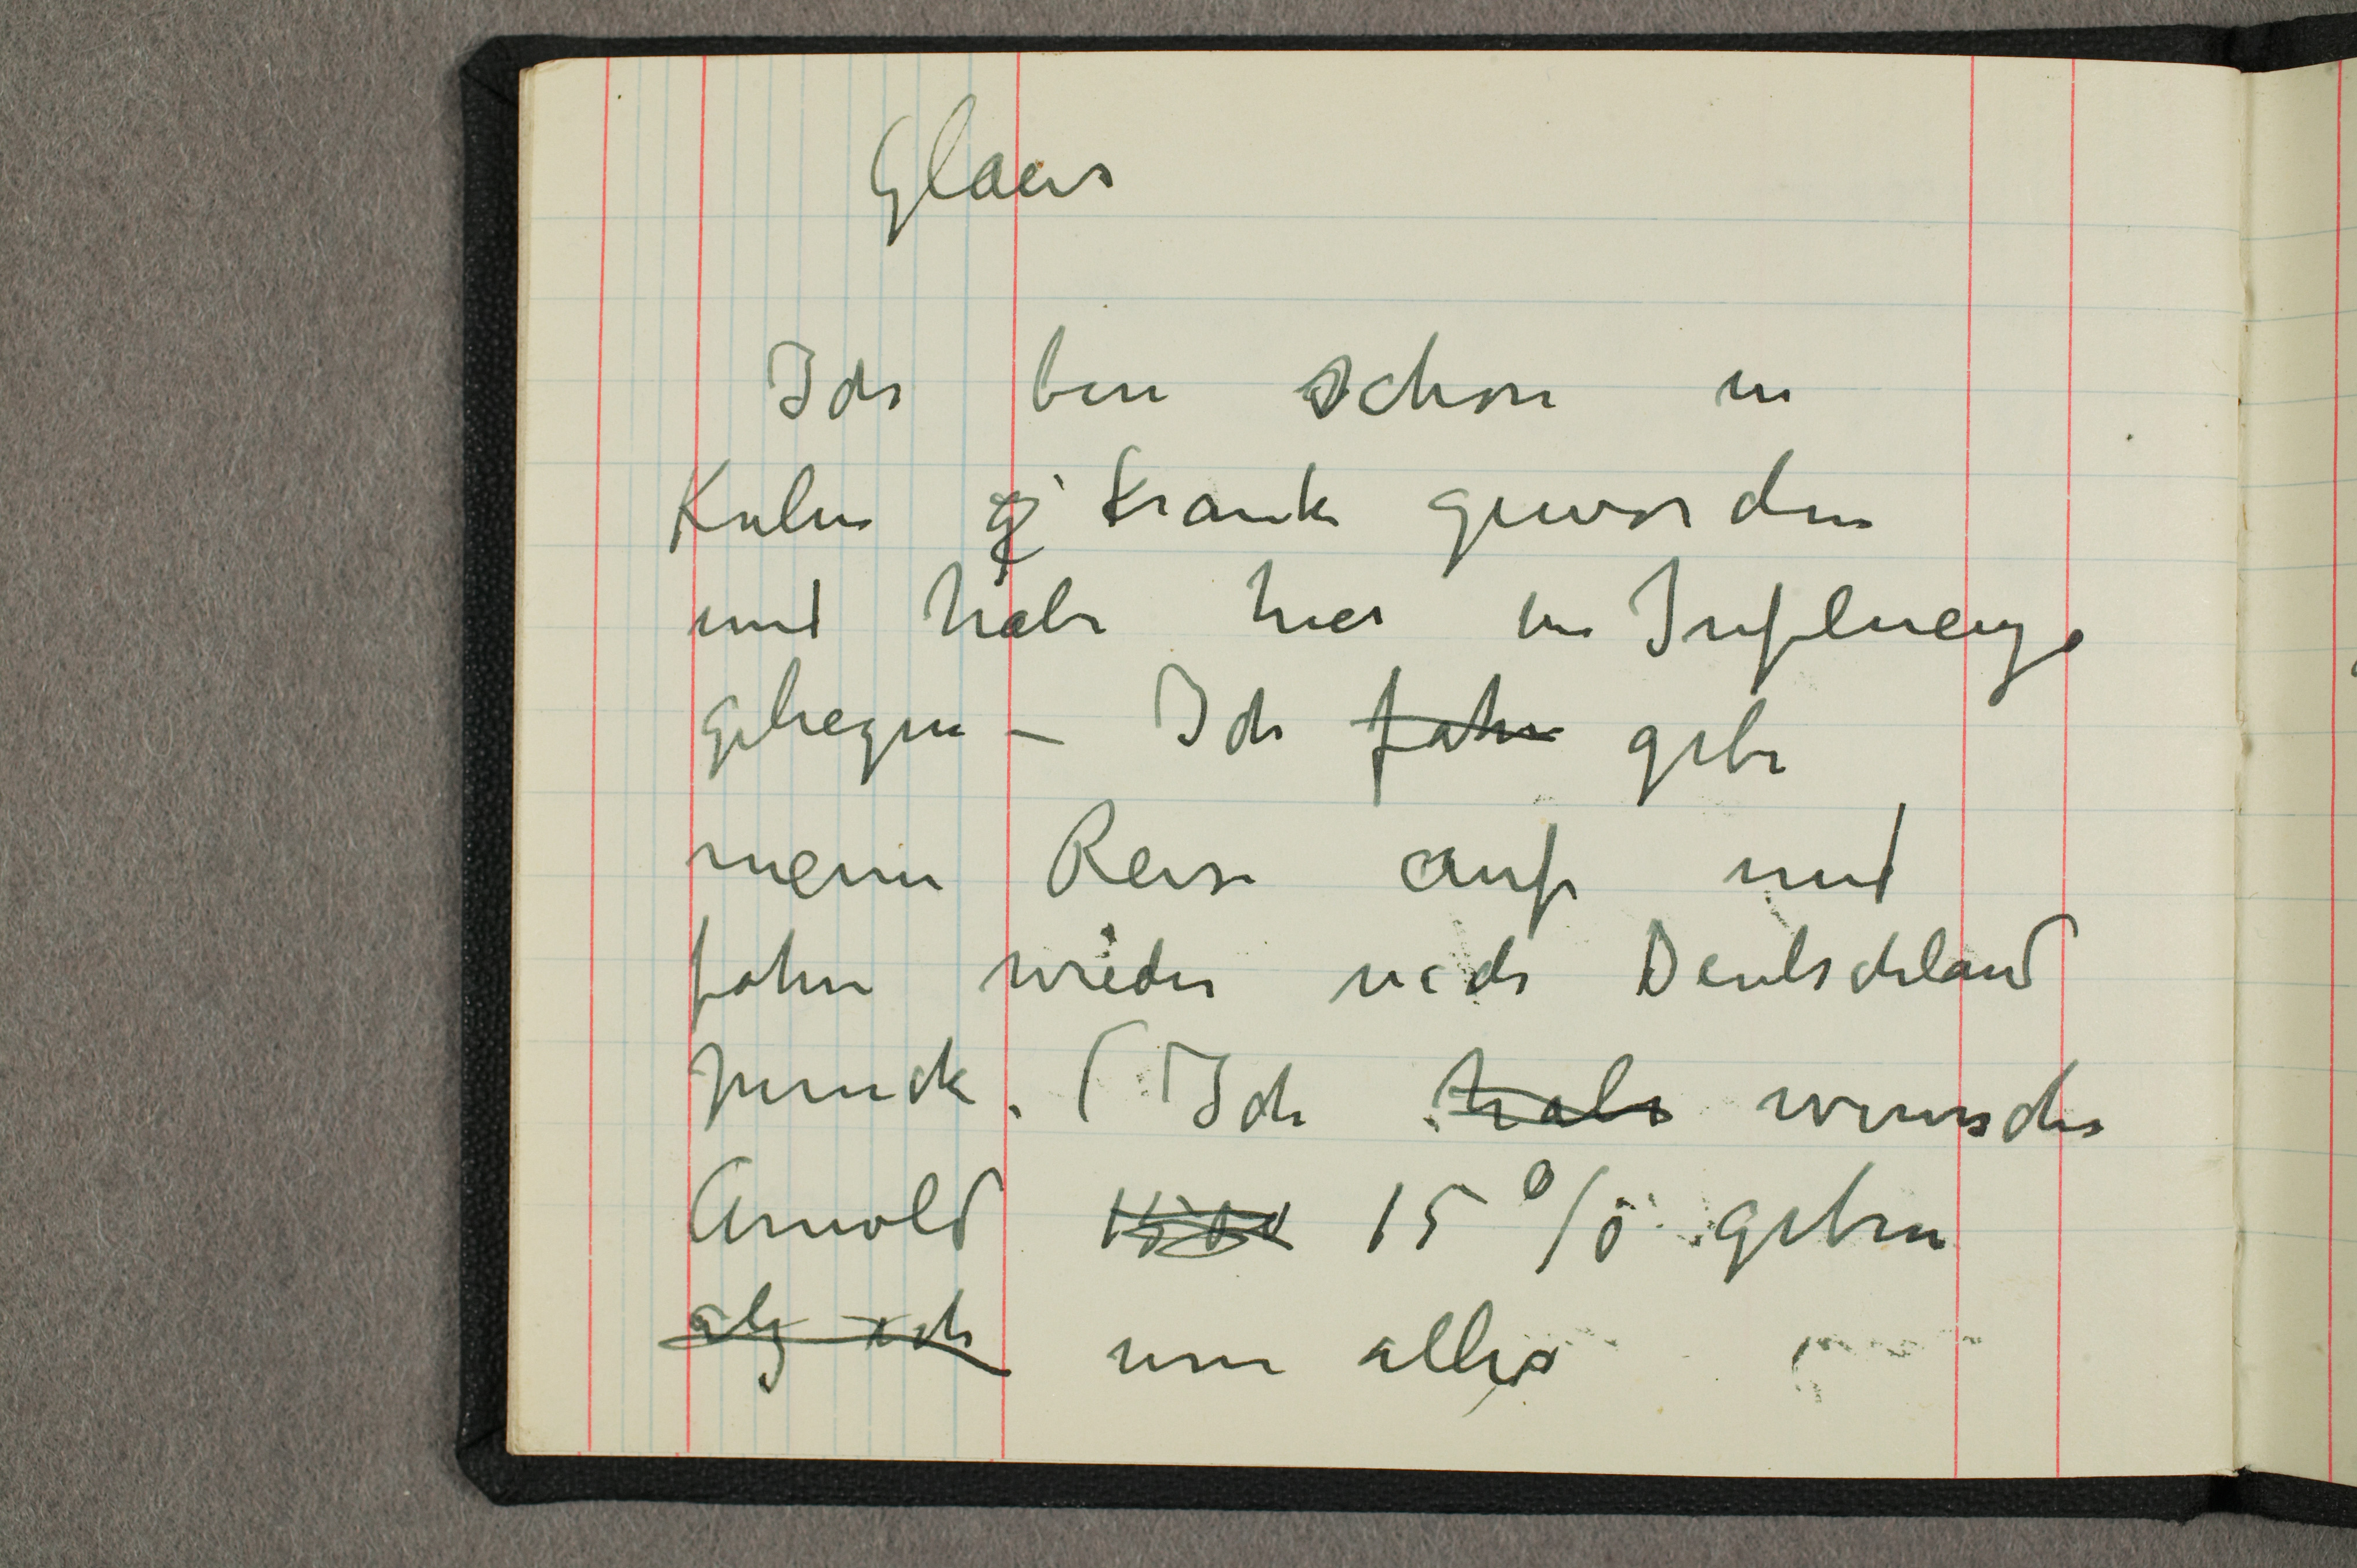 Glaser
Ich bin schon in
Kulm g krank geworden
und habe hier in Influenza
gelegen – Ich fahre gebe
meine Reise auf und
fahre wieder nach Deutschland
zuruck. (Ich habe wunsche
Arnold 15 % geben
als ich um alles